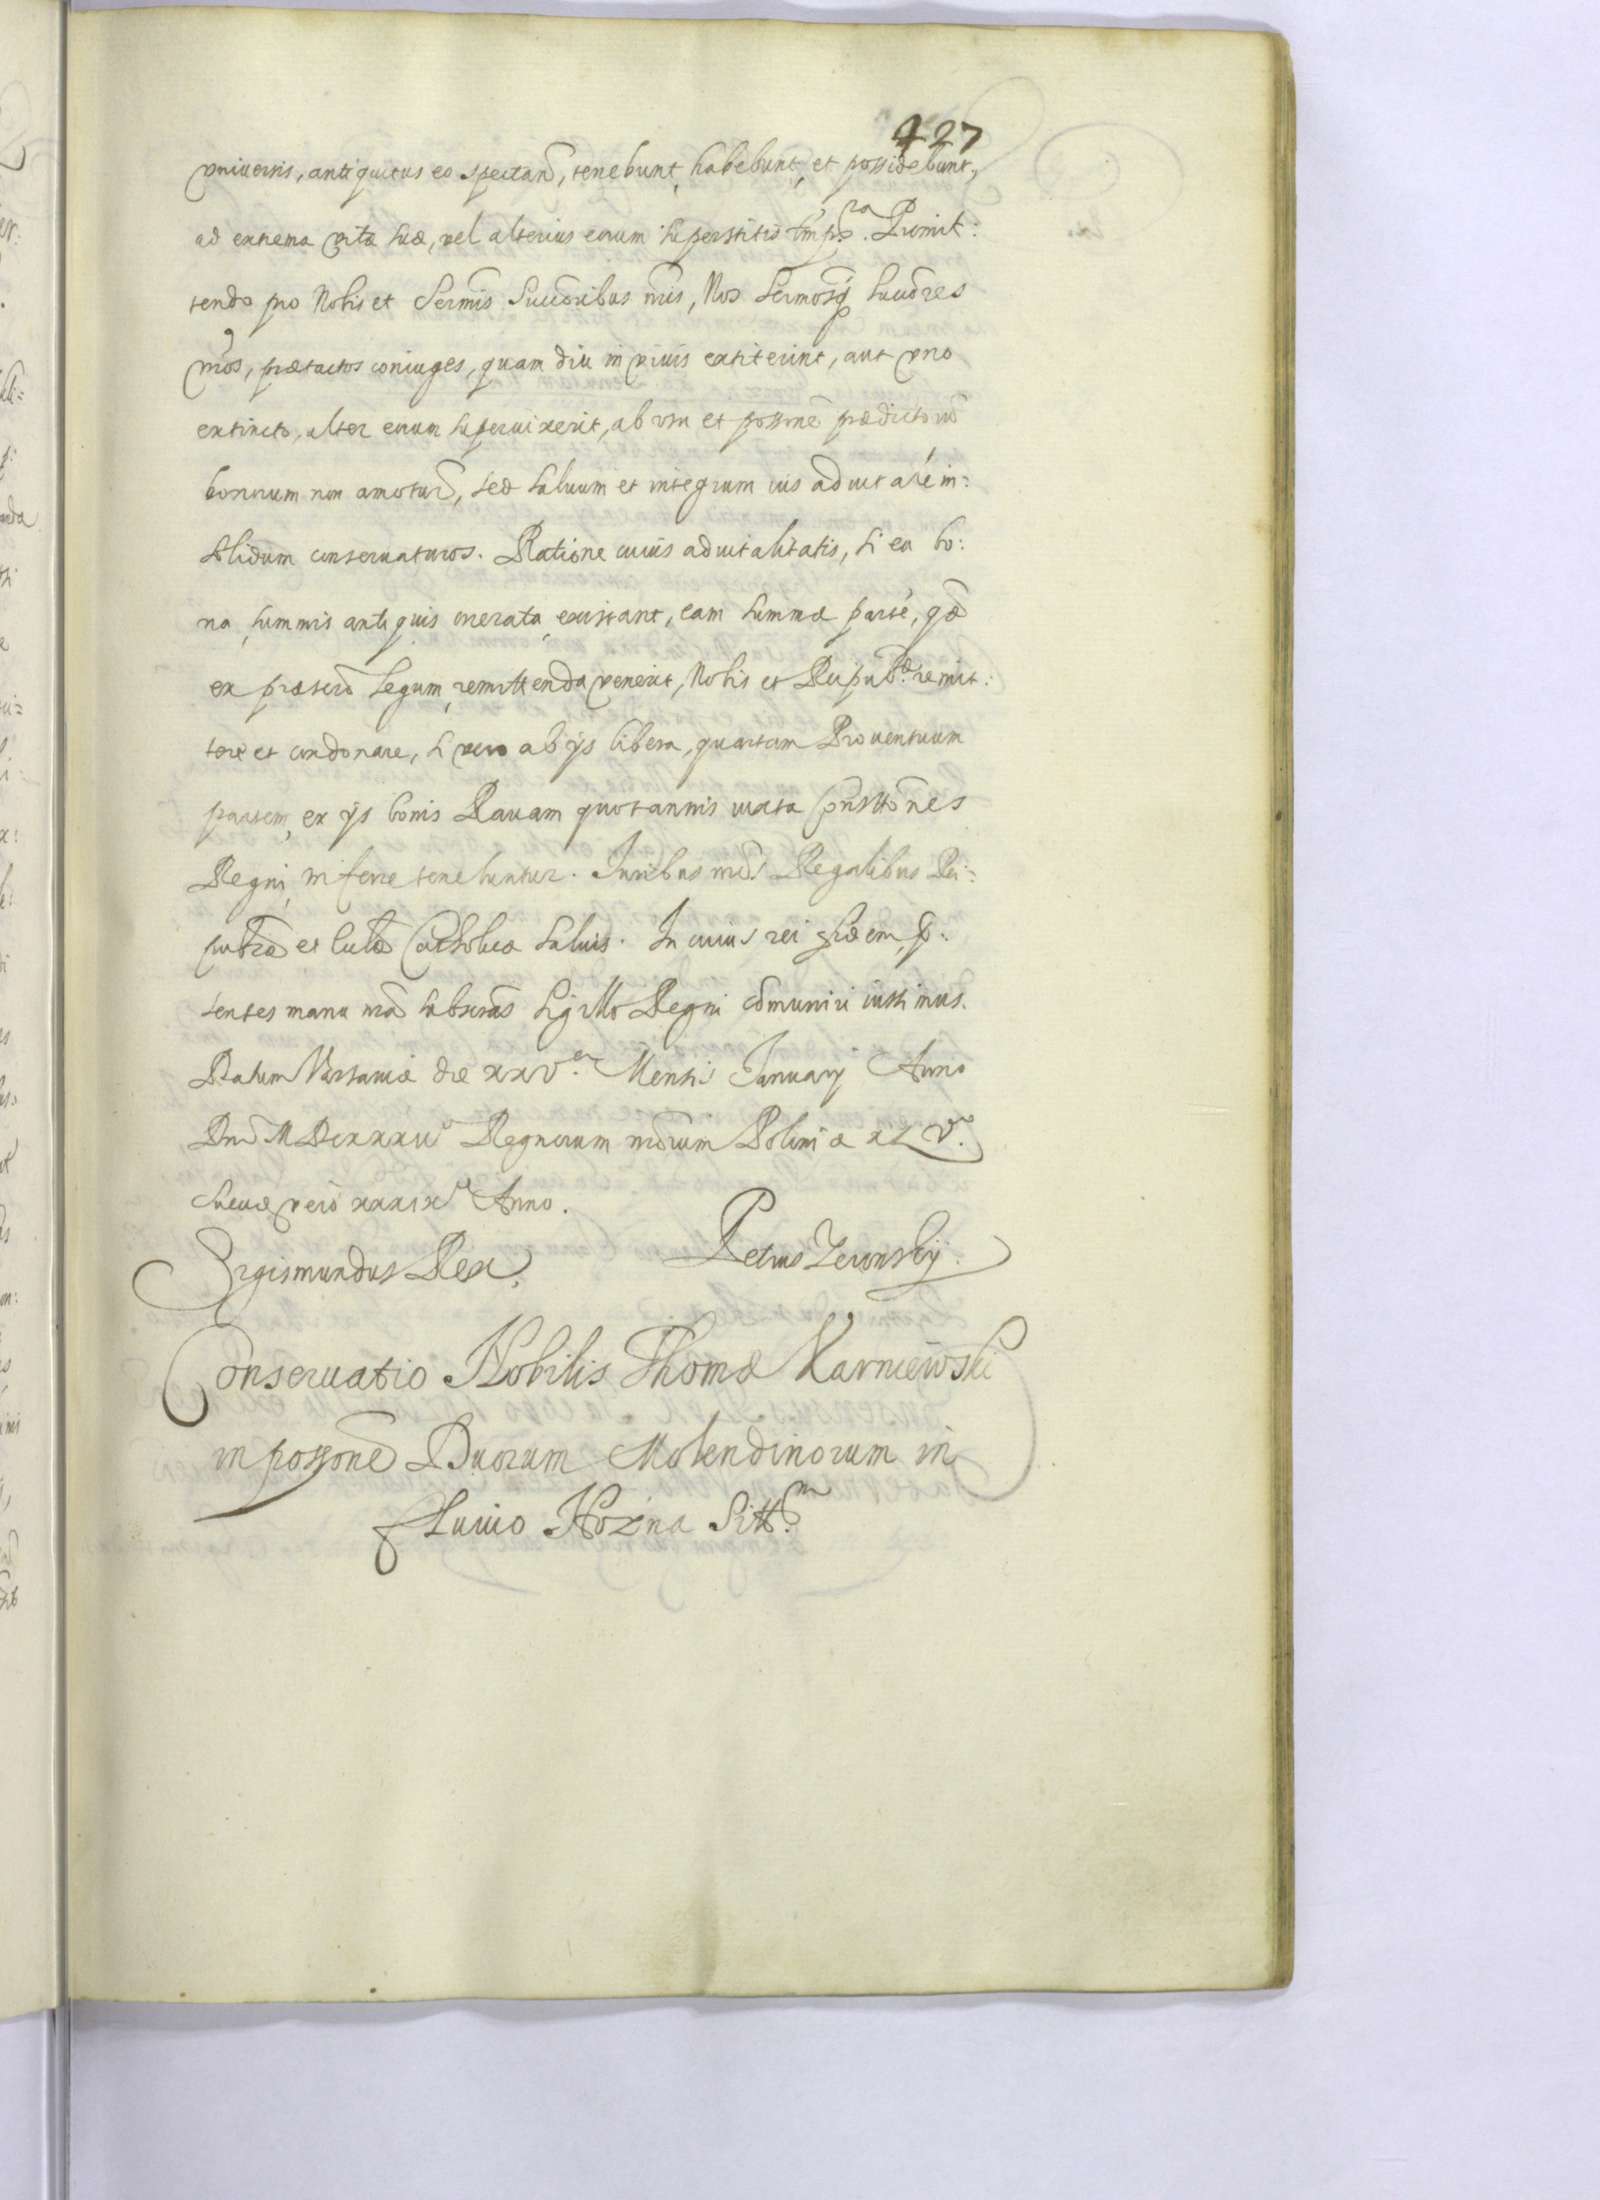 427
vniuersis, antiquitus eo spectañ, tenebunt, habebunt, et possidebunt,
ad extrema vitæ suæ, vel alterius eorum superstitis tmp͂ra. Promit:
tendo pro Nobis et Serm̃is Succ̃oribus nr̃is, Nos Sermosq́ succ̃ores
nr̃os, prætactos coniuges, quam diu in viuis extiterint, aut vno
extincto, alter eorum superuixerit, ab vsu et poss̃one prædictoru͂
bonorum non amoturos̃, sed saluum et integrum ius aduitale in:
solidum conseruaturos. Ratione cuius aduitalitatis, si ea bo:
na, summis antiquis onerata, existant, eam summæ parte͂, qæ̃
ex præscr̃o legum, remittenda venerit, Nobis et Reipub͂æ remit:
tere et condonare, si vero ab ijs libera, quartam Prouentuum
partem, ex ijs bonis Rauam quotannis iuxta Cons̃ttones
Regni, inferre tenebuntur. Iuribus nr̃is Regalibus Rei:
pub͂cæ et Ecclæ̃ Catholicæ saluis. In cuius rei fidem, p̃:
sentes manu nr̃a subscr̃as Sigillo Regni com̃uniri iussimus.
Datum Varsauiæ die xxv.a Mensis Ianuarij Anno
Dnĩ MDCxxxii° Regnorum nr̃orum Poloniæ xLv.°
Sueciæ vero xxxix° Anno.
Sigismundus Rex,
Petrus Zeronsky.
Conseruatio Nobilis Thomæ Karniewski
in poss̃one Duorum Molendinorum in
fluuio Rozna Sitt.m